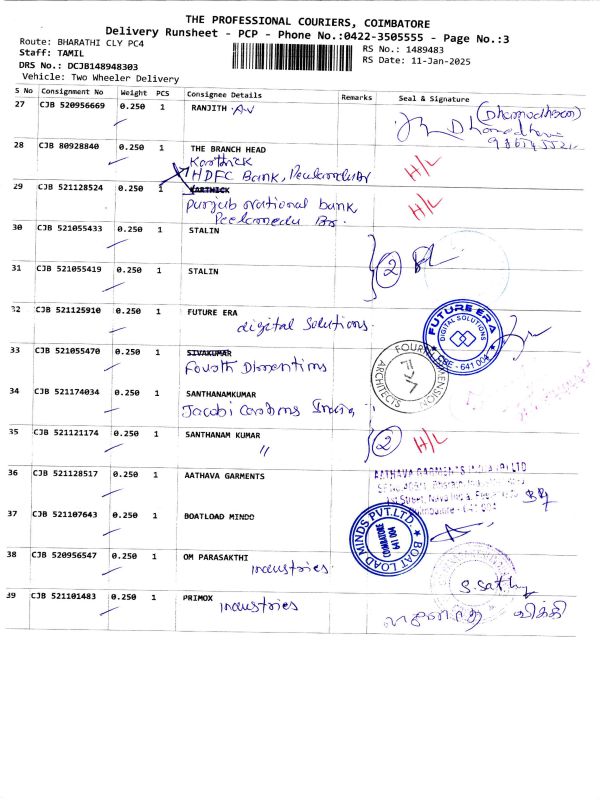 THE PROFESSIONAL COURIERS, COIMBATORE
Delivery Runsheet - PCP - Phone No.:0422-3505555 - Page No.:3
Route: BHARATHI CLY PC4
RS No.: 1489483
Staff: TAMIL
RS Date: 11-Jan-2025
DRS No.: DCJB148948303
Vehicle: Two Wheeler Delivery
S No Consignment No Weight PCS Consignee Details Remarks Seal & Signature
27 CJB 520956669 0.250 1 RANJITH .A.V
(Dhamodharan)
28 CJB 80928840 0.250 1 THE BRANCH HEAD
Karthick
HDFC Bank, H/L
29 CJB 521128524 0.250 1 KARTHICK
punjab national bank H/L
Peelamedu Br
30 CJB 521055433 0.250 1 STALIN
2
31 CJB 521055419 0.250 1 STALIN
32 CJB 521125910 0.250 1 FUTURE ERA
digital Solutions.
FUTURE ERA
DIGITAL SOLUTIONS
CBE - 641 004
33 CJB 521055470 0.250 1 SIVAKUMAR
Fourth Dimentions
FOURTH DIMENSION
ARCHITECTS
34 CJB 521174034 0.250 1 SANTHANAMKUMAR
Jacobi Carbons India
35 CJB 521121174 0.250 1 SANTHANAM KUMAR
" 2 H/L
36 CJB 521128517 0.250 1 AATHAVA GARMENTS
AATHAVA GARMENTS INDIA (P) LTD
37 CJB 521107643 0.250 1 BOATLOAD MINDO
BOAT LOAD MINDS PVT.LTD.
COIMBATORE
641 004
38 CJB 520956547 0.250 1 OM PARASAKTHI
industries.
S.Sathy
39 CJB 521101483 0.250 1 PRIMOX
industries
விக்கி